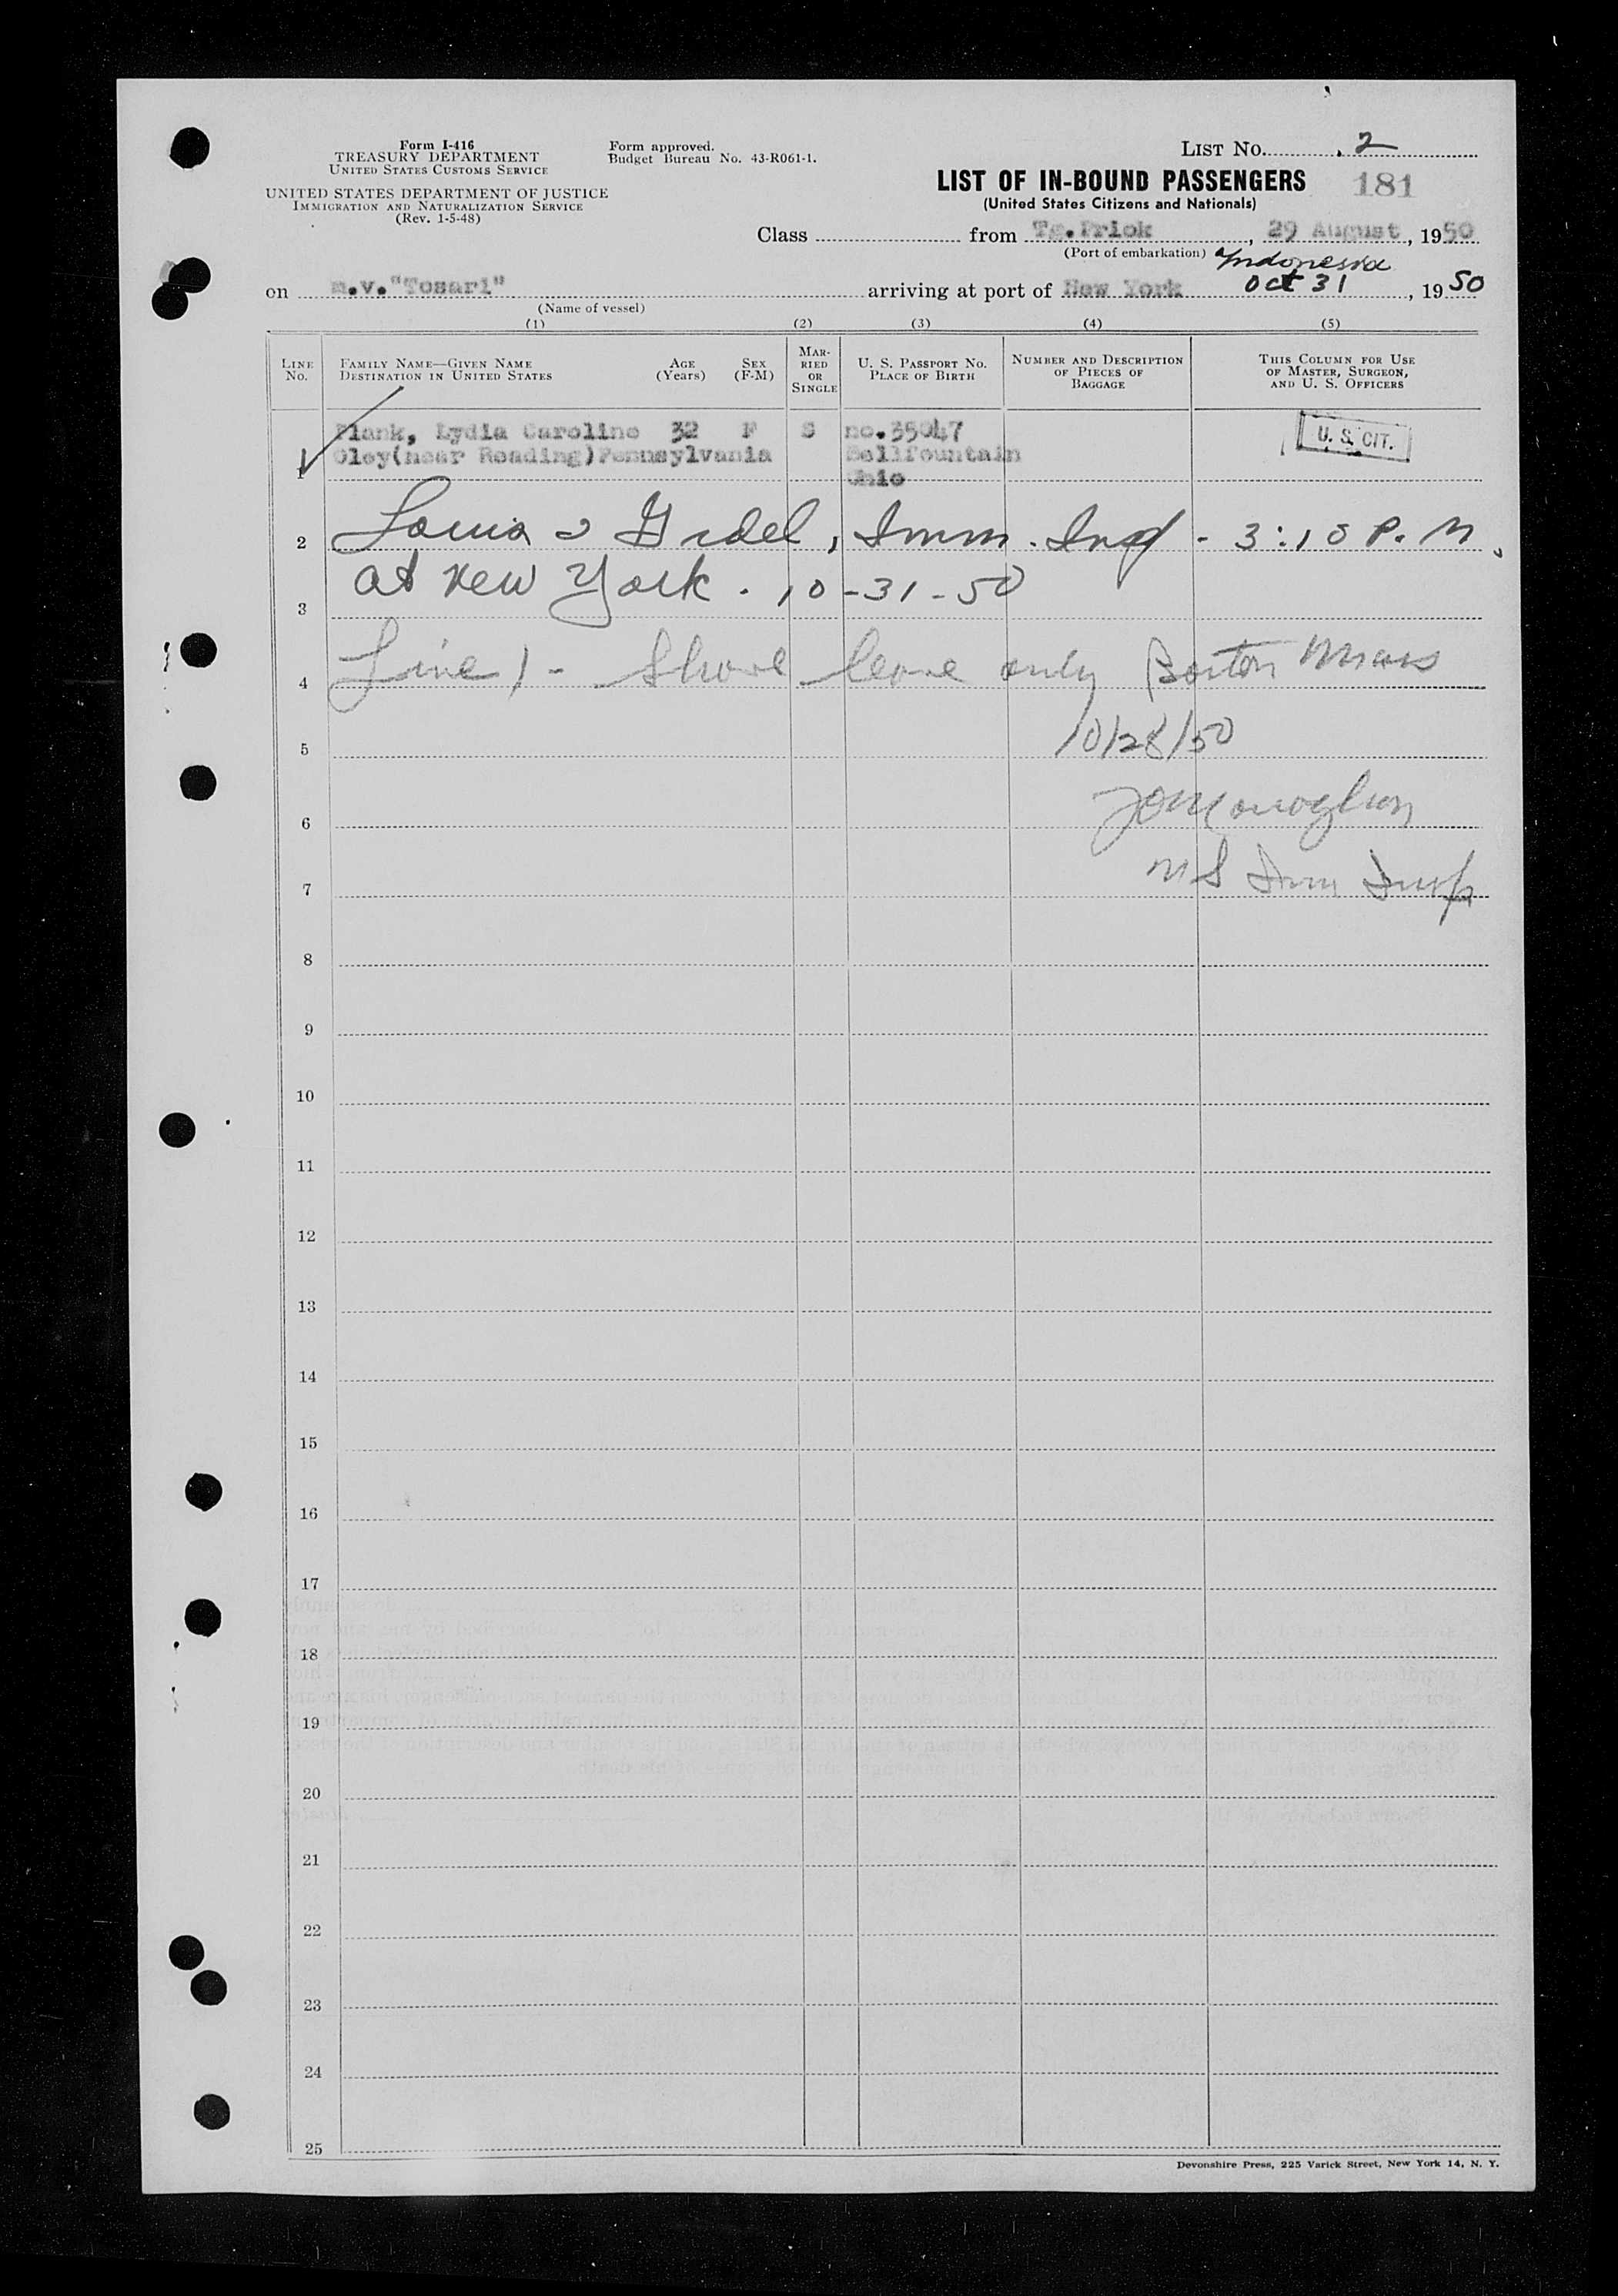 Form I-416
TREASURY DEPARTMENT
UNITED STATES CUSTOMS SERVICE
UNITED STATES DEPARTMENT OF JUSTICE
IMMIGRATION AND NATURALIZATION SERVICE
(Rev. 1-5-48)
Form approved.
Budget Bureau No. 43-R061-1.
LIST No. 2
LIST OF IN-BOUND PASSENGERS 181
(United States Citizens and Nationals)
Class from Tg.Priok, 29 August, 1950
(Port of embarkation) Indonesia
on m.v."Tosari" arriving at port of New York Oct 31, 1950
(Name of vessel)
(1) (2) (3) (4) (5)
LINE No.
FAMILY NAME—GIVEN NAME AGE (Years) SEX (F-M)
DESTINATION IN UNITED STATES
MARRIED OR SINGLE
U. S. PASSPORT NO.
PLACE OF BIRTH
NUMBER AND DESCRIPTION OF PIECES OF BAGGAGE
THIS COLUMN FOR USE OF MASTER, SURGEON, AND U. S. OFFICERS
1 Plank, Lydia Caroline 32 F S no.35047 U. S. CIT.
Oley(near Reading)Pennsylvania Bellfountain
Ohio
2 Louis, Imm. Insp - 3:10 P.M.
3 at New York. 10-31-50
4 Line 1 - Shore leave only Boston Mass
5 10/28/50
6
7 Imm Insp
8
9
10
11
12
13
14
15
16
17
18
19
20
21
22
23
24
25
Devonshire Press, 225 Varick Street, New York 14, N. Y.